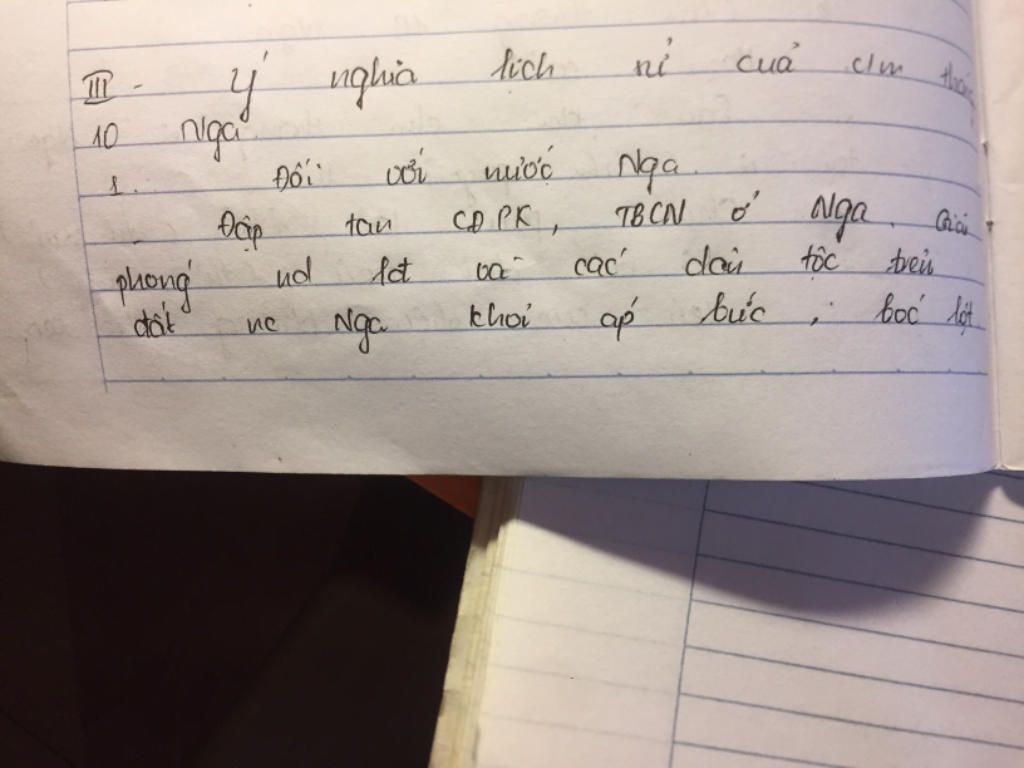 III - Ý nghĩa lịch sử của c/m tháng
10 Nga
1. Đối với nước Nga.
- Đập tan CĐPK, TBCN ở Nga. Giải
phóng nd lđ và các dân tộc trên
đất nc Nga khỏi áp bức, bóc lột